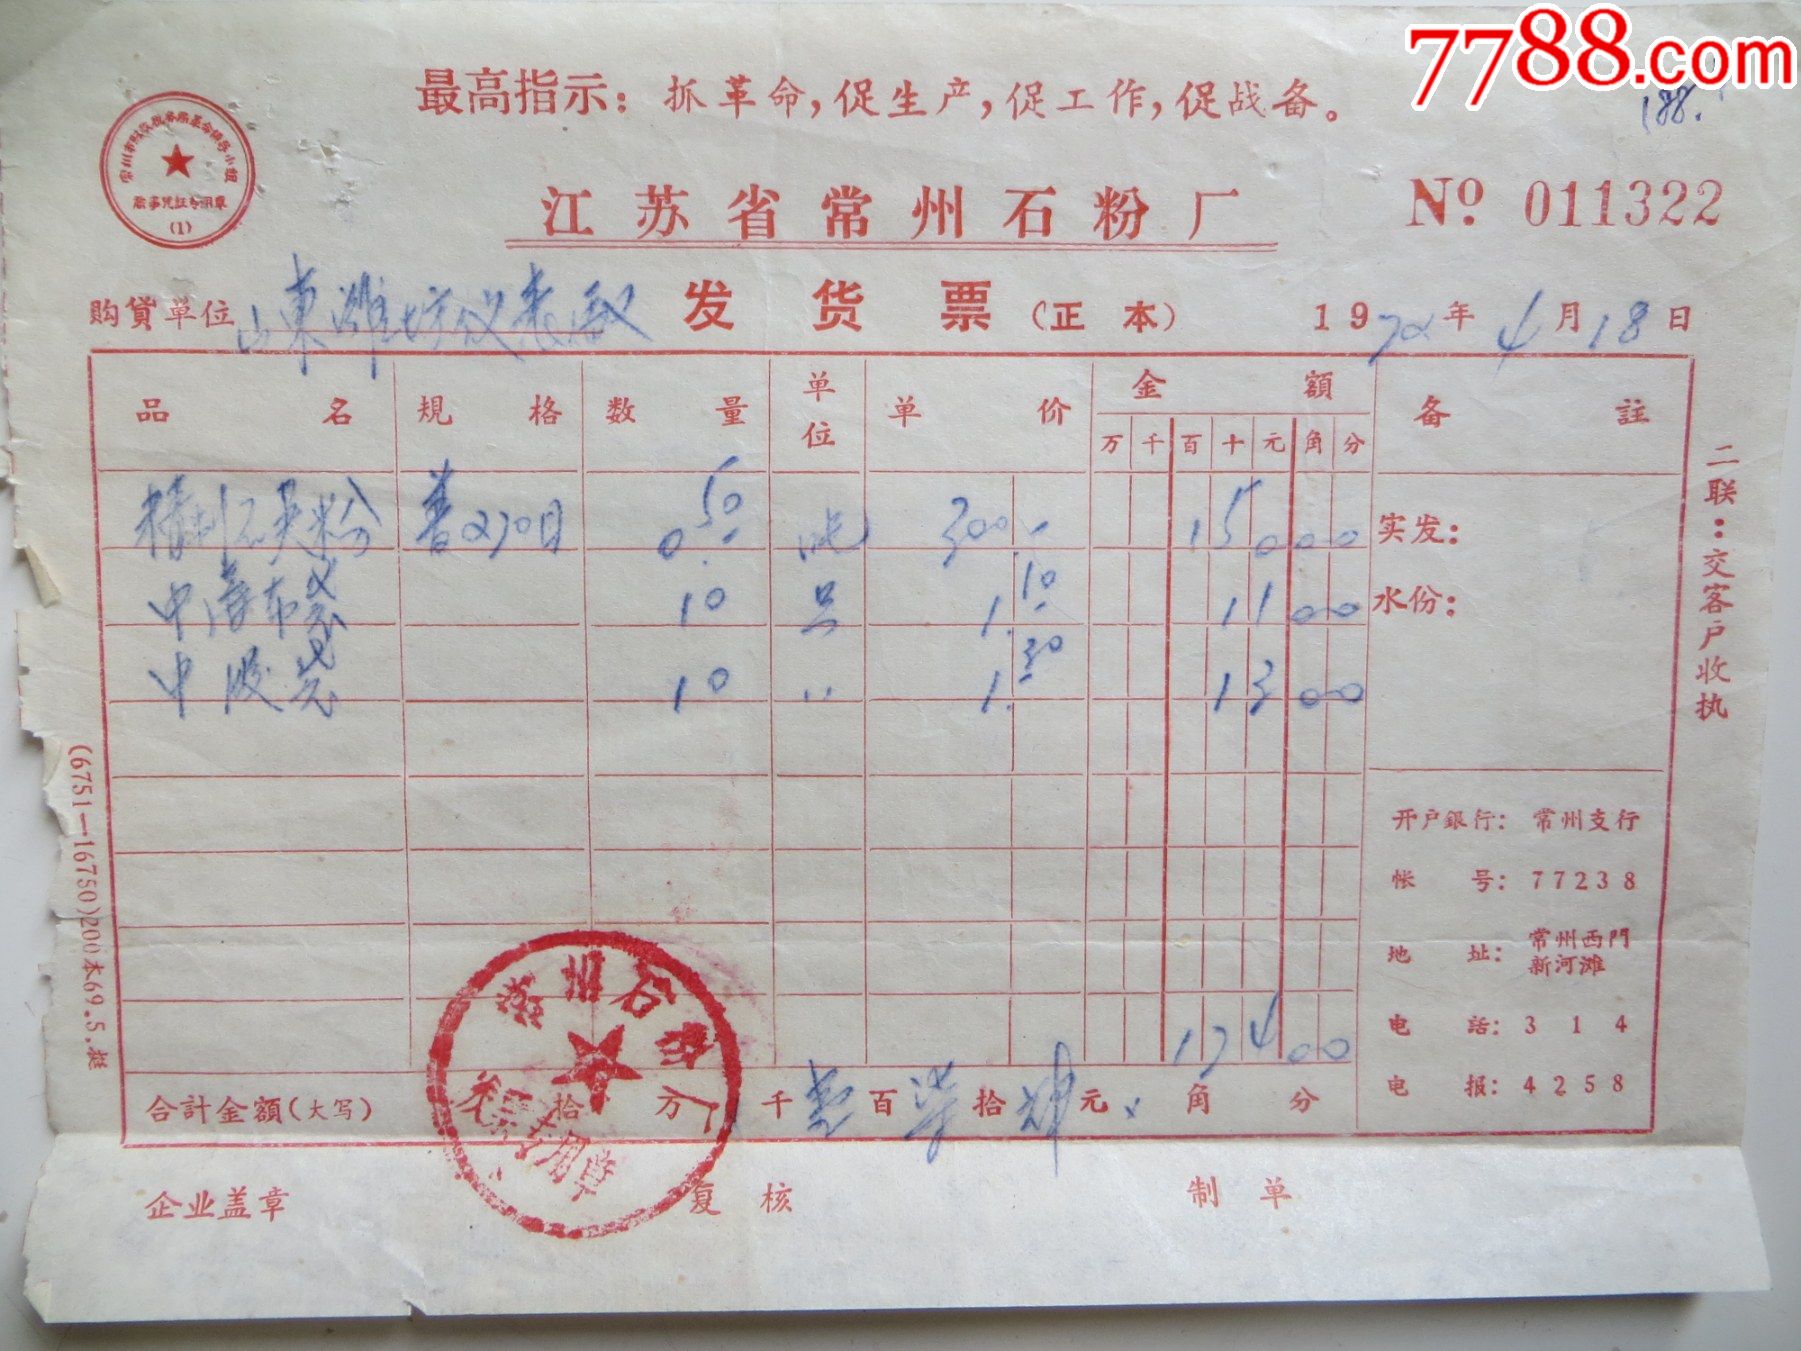 7788.com
最高指示：抓革命，促生产，促工作，促战备。
188.
常州市财政税务局革命领导小组
商事凭证专用章
(1)
江苏省常州石粉厂
№ 011322
购貨单位 山東潍坊仪表厰
发货票(正本)
1972年4月18日
品名 規格 数量 单位 单价 金額 备註
万 千 百 十 元 角 分
精制石英粉 普270目 0.50 吨 300.- 15000
实发：
中薄布袋 10 只 1.10 1100
水份：
中胶袋 10 〃 1.30 1300
17400
合計金額(大写) 拾 万 千 壹 百 柒 拾 肆 元 角 分
开户銀行：常州支行
帐号：77238
地址：常州西門
新河滩
电話：314
电报：4258
二联：交客户收执
(6751—16750)200本69.5.
常州石粉厂
发票专用章
企业盖章 复核 制单